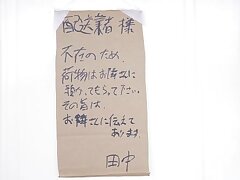 配送者様
不在のため
荷物はお隣さんに
預けてもらって下さい。
その旨は、
お隣さんに伝えて
おります。
田中